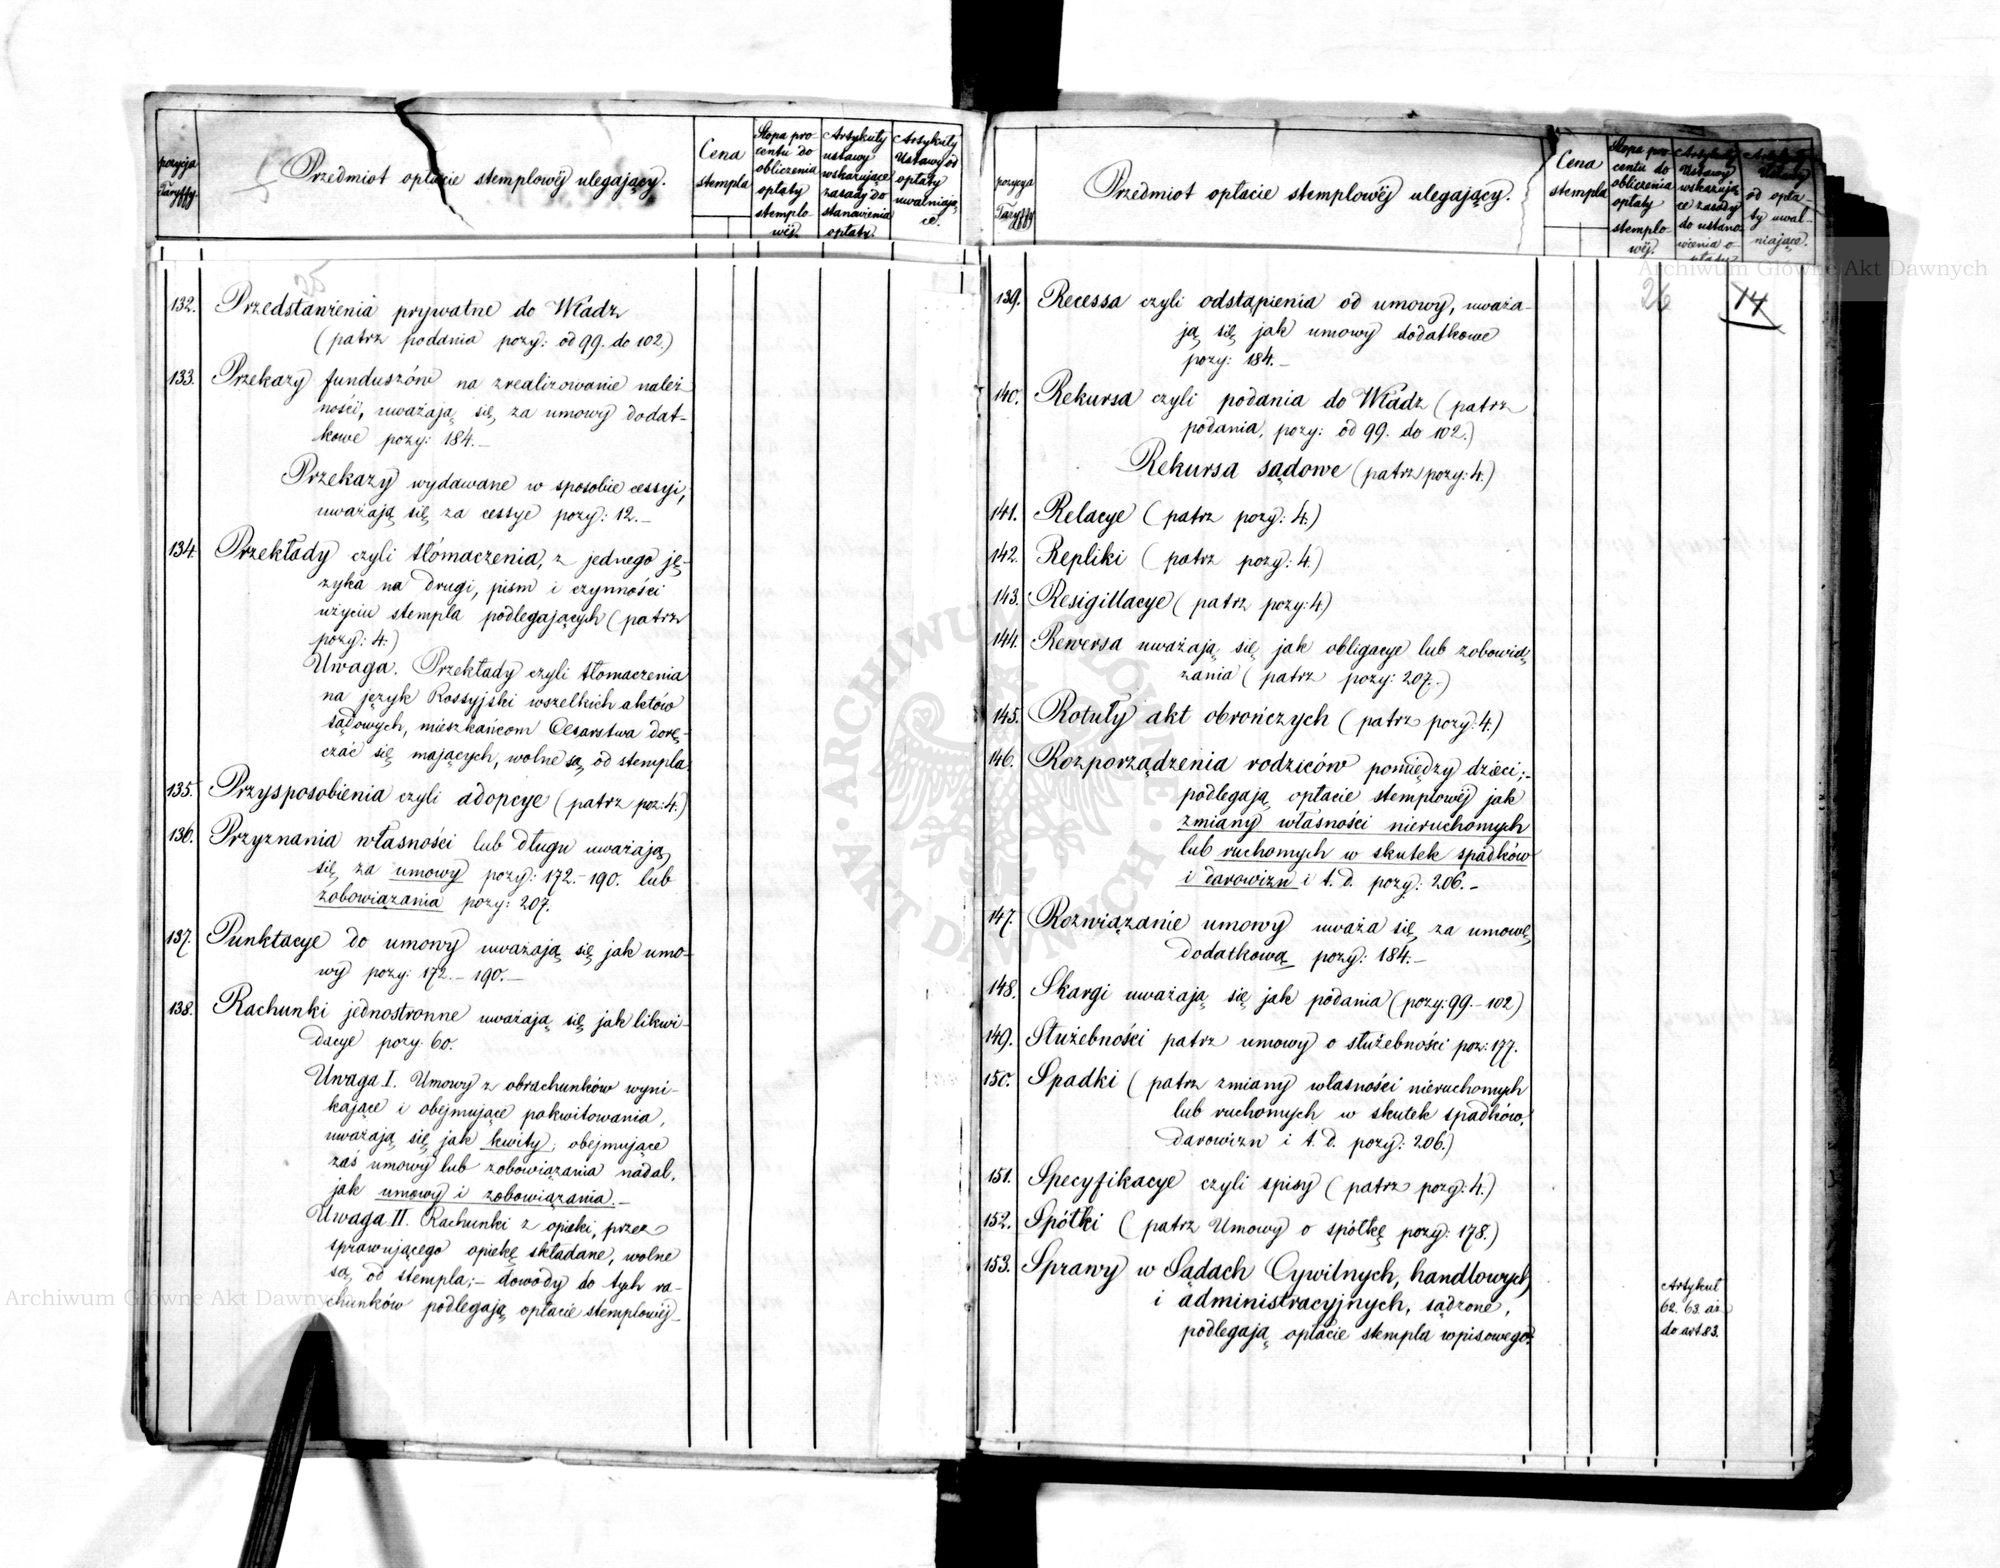 pozycja Taryffy
Przedmiot opłacie stemplowéj ulegający.
Cena stempla
Stopa procentu do obliczenia opłaty stemplowéj.
Artykuły ustawy wskazujące zasady do stanowienia opłaty.
Artykuły Ustawy od opłaty uwalniające.
25
132. Przedstawienia prywatne do Władz
(patrz podania pozy: od 99. do 102.)
133. Przekazy funduszów na zrealizowanie należ-
ności, uważają się za umowy dodat-
kowe pozy: 184.–
Przekazy wydawane w sposobie cessyi,
uważają się za cessye pozy: 12.–
134. Przekłady czyli tłómaczenia, z jednego ję-
zyka na drugi, pism i czynności
użyciu stempla podlegających (patrz
pozy: 4.)
Uwaga. Przekłady czyli tłomaczenia
na język Rossyjski wszelkich aktów
sądowych, mieszkańcom Cesarstwa dorę-
czać się mających, wolne są od stempla.
135. Przysposobienia czyli adopcye (patrz poz: 4.)
136. Przyznania własności lub długu uważają
się za umowy pozy: 172.–190. lub
zobowiązania pozy: 207.
137. Punktacye do umowy uważają się jak umo-
wy pozy: 172.–190.–
138. Rachunki jednostronne uważają się jak likwi-
dacye pozy. 60.
Uwaga I. Umowy z obrachunków wyni-
kające i obejmujące pokwitowania,
uważają się jak kwity; obejmujące
zaś umowy lub zobowiązania nadal,
jak umowy i zobowiązania.–
Uwaga II. Rachunki z opieki, przez
sprawującego opiekę składane, wolne
są od stempla;– dowody do tych ra-
chunków podlegają opłacie stemplowéj
pozycya Taryffy
Przedmiot opłacie stemplowéj ulegający.
Cena stempla
Stopa procentu do obliczenia opłaty stemplowéj.
Artykuły Ustawy wskazujące zasady do ustanowienia opłaty
Artykuły Ustawy od opłaty uwalniające.
26
14
139. Recessa czyli odstąpienia od umowy, uważa-
ją się jak umowy dodatkowe
pozy: 184.–
140. Rekursa czyli podania do Władz (patrz
podania, pozy: od 99. do 102.)
Rekursa sądowe (patrz pozy: 4.)
141. Relacye (patrz pozy: 4.)
142. Repliki (patrz pozy: 4.)
143. Resigillacye (patrz pozy: 4.)
144. Rewersa uważają się jak obligacye lub zobowią-
zania (patrz pozy: 207.)
145. Rotuły akt obrończych (patrz pozy: 4.)
146. Rozporządzenia rodziców pomiędzy dzieci;–
podlegają opłacie stemplowéj jak
zmiany własności nieruchomych
lub ruchomych w skutek spadków
i darowizn i t. d. pozy: 206.–
147. Rozwiązanie umowy uważa się za umowę
dodatkową pozy: 184.–
148. Skargi uważają się jak podania (pozy: 99.–102)
149. Służebności patrz umowy o służebności poz: 177.
150. Spadki (patrz zmiany własności nieruchomych
lub ruchomych w skutek spadków,
darowizn i t. d. pozy: 206.)
151. Specyfikacye czyli spisy (patrz pozy: 4.)
152. Spółki (patrz Umowy o spółkę pozy: 178.)
153. Sprawy w Sądach Cywilnych, handlowych
i administracyjnych, sądzone,
podlegają opłacie stempla wpisowego.
Artykuł
62. 63. aż
do art. 83.
Archiwum Główne Akt Dawnych
Archiwum Główne Akt Dawnych
ARCHIWUM GŁÓWNE · AKT DAWNYCH ·